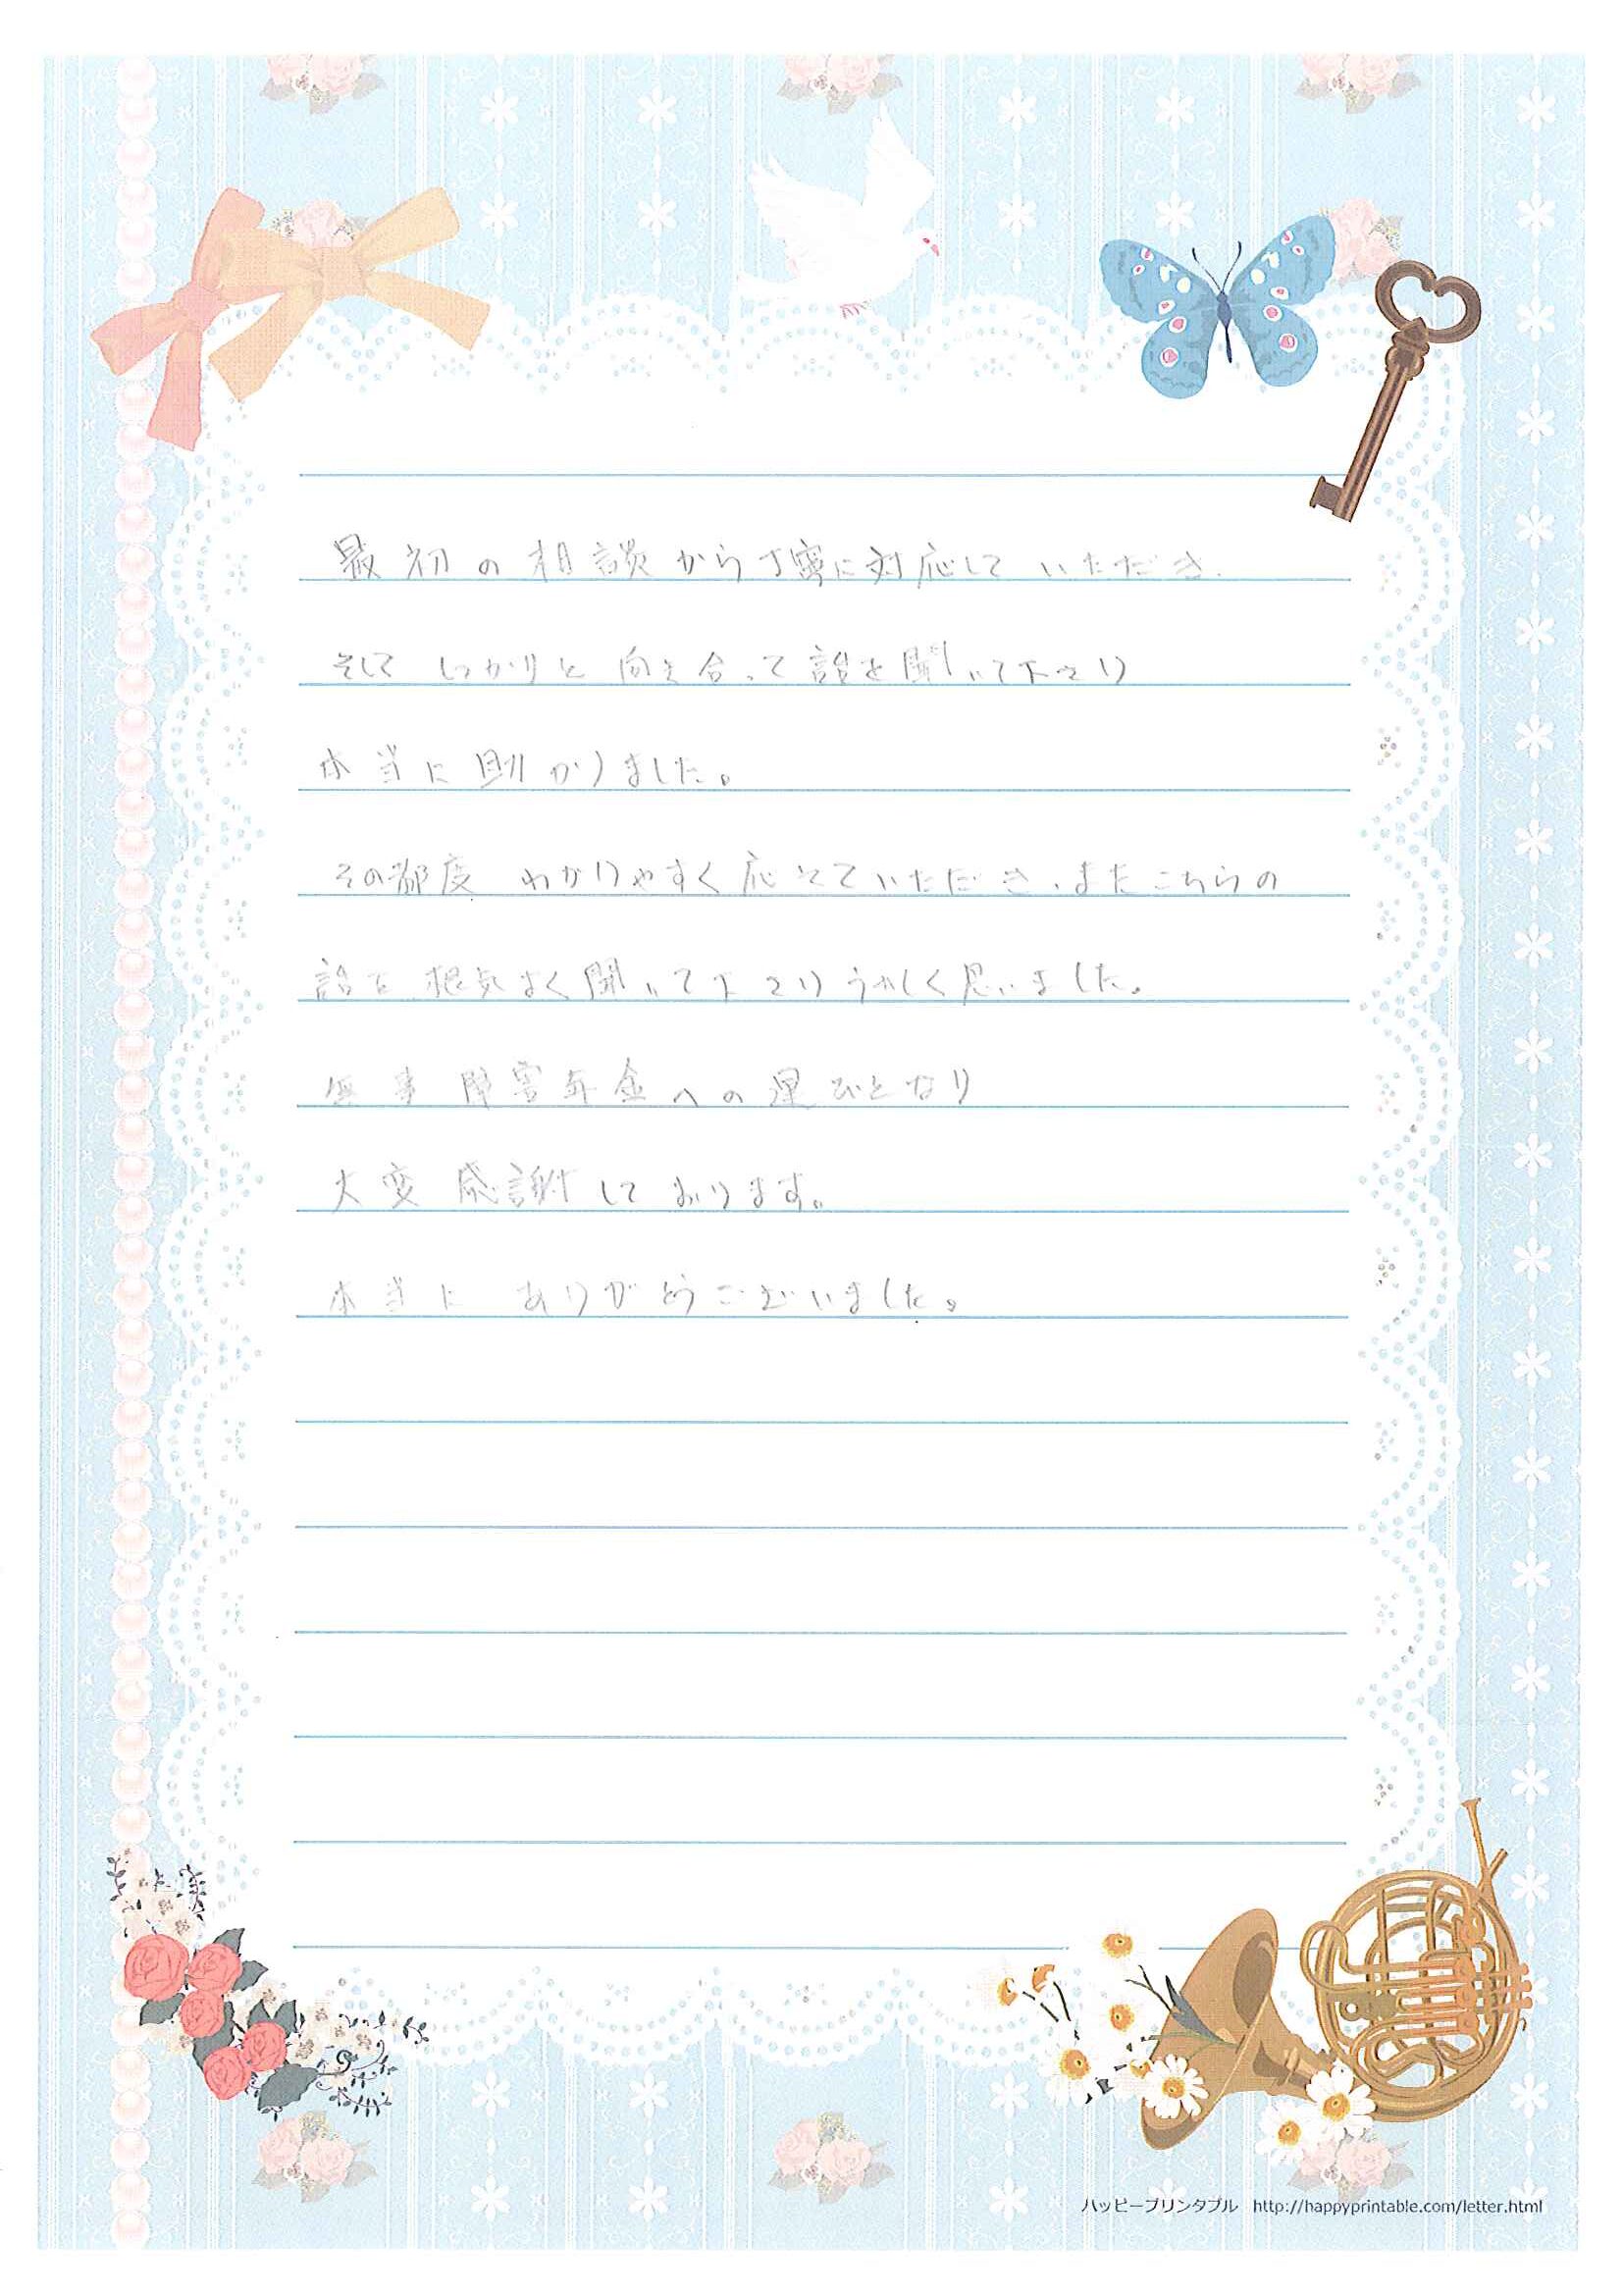 最初の相談から丁寧に対応していただき、
そしてしっかりと向き合って話を聞いて下さり
本当に助かりました。
その都度わかりやすく応えていただき、またこちらの
話を根気よく聞いて下さりうれしく思いました。
無事障害年金への運びとなり
大変感謝しております。
本当にありがとうございました。
ハッピープリンタブル http://happyprintable.com/letter.html